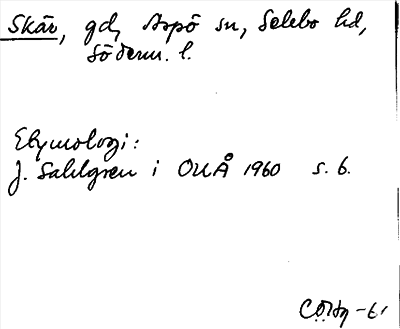 Skär, gd, Aspö sn, Selebo hd,
Söderm. l.
Etymologi:
J. Sahlgren i OUÅ 1960 s. 6.
-61